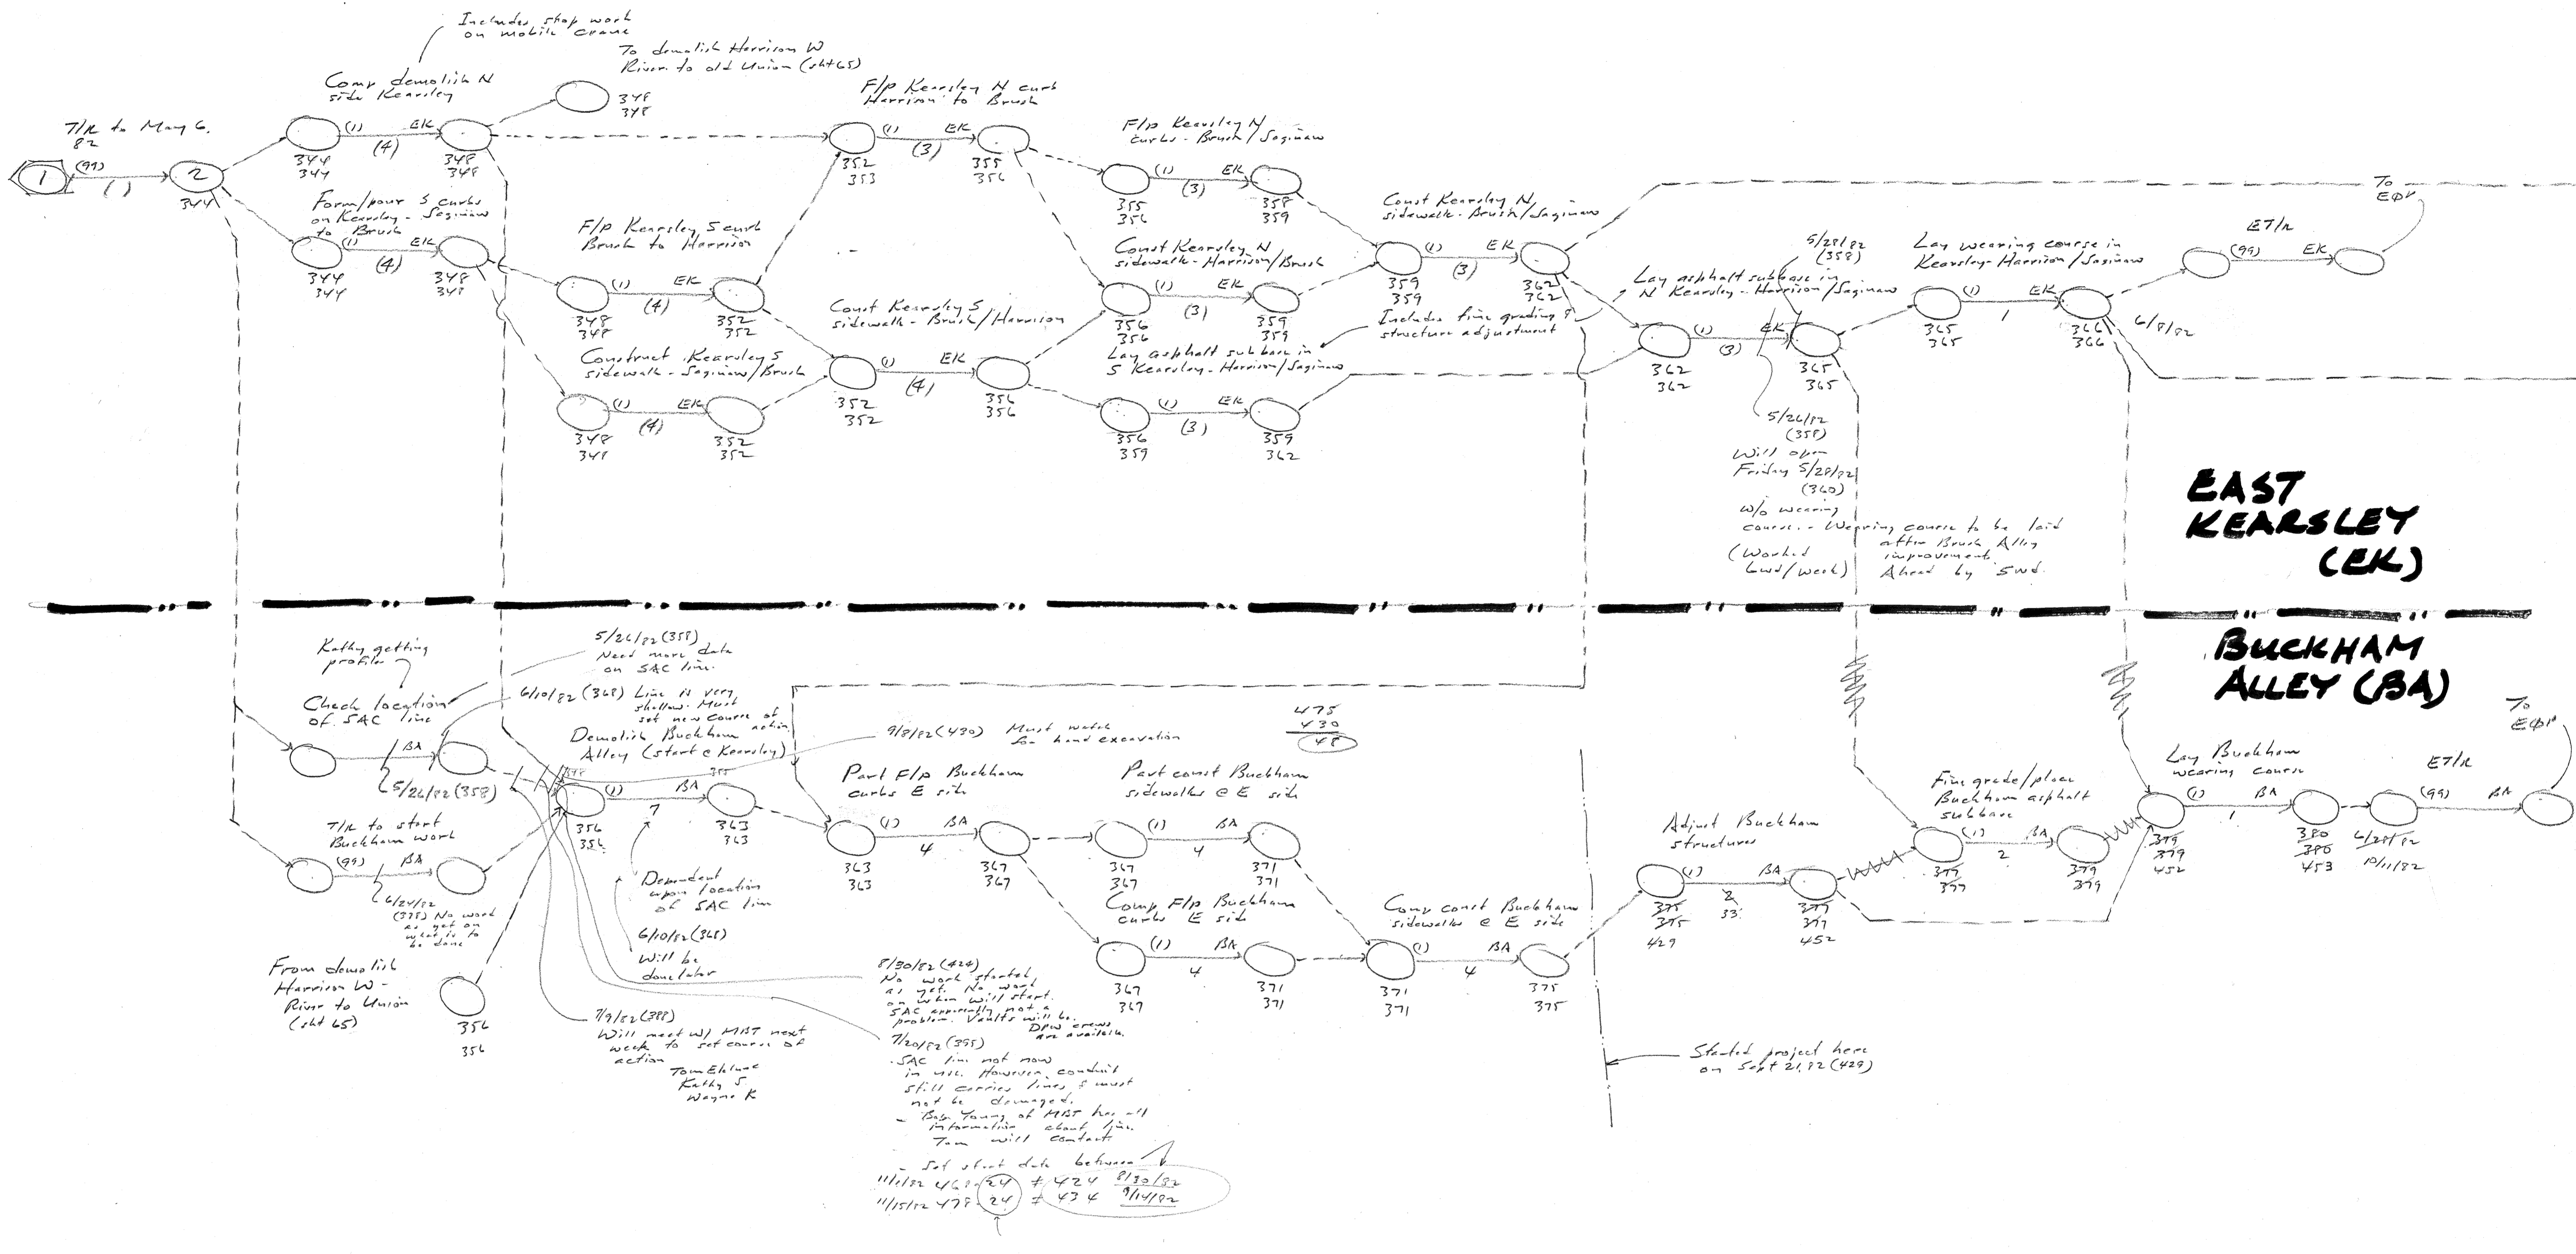 Includes shop work
on mobile crane
To demolish Harrison W
River to old Union (sht 65)
Comp demolish N
side Kearsley
348
348
T/R to May 6,
82
1
(99)
( )
2
344
(1) EK
(4)
344
344
348
348
Form/pour S curbs
on Kearsley - Saginaw
to Brush
(1) EK
(4)
344
344
348
348
F/p Kearsley N curb
Harrison to Brush
(1) EK
(3)
352
353
355
356
F/p Kearsley N
curbs - Brush/Saginaw
(1) EK
(3)
355
356
358
359
F/p Kearsley S curb
Brush to Harrison
(1) EK
(4)
348
348
352
352
Construct Kearsley S
sidewalk - Saginaw/Brush
(1) EK
(4)
348
348
352
352
Const Kearsley S
sidewalk - Brush/Harrison
(1) EK
(4)
352
352
356
356
Const Kearsley N
sidewalk - Harrison/Brush
(1) EK
(3)
356
356
359
359
Lay asphalt subbase in
S Kearsley - Harrison/Saginaw
(1) EK
(3)
356
359
359
362
Const Kearsley N
sidewalk - Brush/Saginaw
(1) EK
(3)
359
359
362
362
Includes fine grading &
structure adjustment
5/28/82
(358)
Lay asphalt subbase in
N Kearsley - Harrison/Saginaw
(1) EK
(3)
362
362
365
365
5/26/82
(358)
Will open
Friday 5/28/82
(360)
w/o wearing
course. - Wearing course to be laid
after Brush Alley
improvement
(Worked
6wd/week)
Ahead by 5 wd.
Lay wearing course in
Kearsley - Harrison/Saginaw
(1) EK
1
365
365
366
366
6/8/82
ET/R
(99) EK
To
EOP
EAST
KEARSLEY
(EK)
BUCKHAM
ALLEY (BA)
Kathy getting
profile
Check location
of SAC line
BA
5/26/82 (358)
5/26/82 (358)
Need more data
on SAC line.
6/10/82 (368) Line is very
shallow. Must
set new course of
action
T/R to start
Buckham work
(99) BA
6/24/82
(378) No word
as yet on
what is to
be done
From demolish
Harrison W -
River to Union
(sht 65)
356
356
Demolish Buckham
Alley (start @ Kearsley)
(1) BA
7
356
356
363
363
Dependent
upon location
of SAC line
6/10/82 (368)
Will be
done later
7/9/82 (388)
Will meet w/ MBT next
week to set course of
action
Kathy S
Wayne K
9/8/82 (430) Must watch
for hand excavation
475
430
48
Part F/p Buckham
curbs E side
(1) BA
4
363
363
367
367
Part const Buckham
sidewalks @ E side
(1) BA
4
367
367
371
371
Comp F/p Buckham
curbs E side
(1) BA
4
367
367
371
371
Comp const Buckham
sidewalks @ E side
(1) BA
4
371
371
375
375
8/30/82 (424)
No work started
as yet. No word
on when will start.
SAC apparently not a
problem. Vaults will be.
DPW crews
are available.
7/20/82 (395)
- SAC line not now
in use. However, conduit
still carries lines & must
not be damaged.
- Bob Young of MBT has all
information about line.
Tom will contact.
- Set start date between
11/1/82 468-24 = 424 8/30/82
11/15/82 478-24 = 434 9/14/82
Started project here
on Sept 21, 82 (429)
Adjust Buckham
structures
(1) BA
2
33
375
375
429
377
377
452
Fine grade/place
Buckham asphalt
subbase
(1) BA
2
377
377
379
379
Lay Buckham
wearing course
(1) BA
1
379
379
452
380
380
453
6/28/82
10/11/82
ET/R
(99) BA
To
EOP